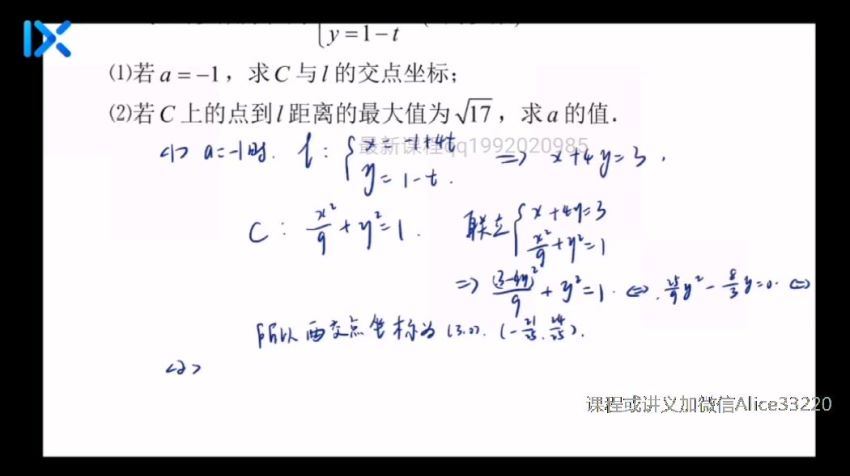 y=1-t
⑴若a=-1，求C与l的交点坐标；
⑵若C上的点到l距离的最大值为√17，求a的值．
最新课程qq1992020985
<1> a=-1时. l：{x=-1+4t ⇒ x+4y=3，
y=1-t.
C：x²/9+y²=1. 联立{x+4y=3
x²/9+y²=1
⇒ (3-4y)²/9+y²=1. ⇔ 25/9y²-8/3y=0. ⇔
所以两交点坐标为(3,0)，(-21/25，24/25).
<2>
课程或讲义加微信Alice33220